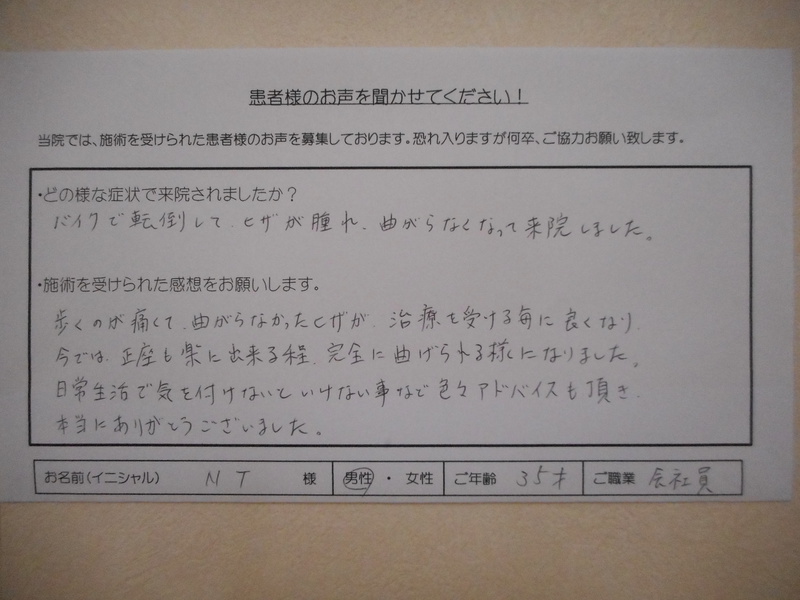 患者様のお声を聞かせてください！
当院では、施術を受けられた患者様のお声を募集しております。恐れ入りますが何卒、ご協力お願い致します。
・どの様な症状で来院されましたか？
バイクで転倒して、ヒザが腫れ、曲がらなくなって来院しました。
・施術を受けられた感想をお願いします。
歩くのが痛くて、曲がらなかったヒザが、治療を受ける毎に良くなり、
今では、正座も楽に出来る程、完全に曲げられる様になりました。
日常生活で気を付けないといけない事など色々アドバイスも頂き、
本当にありがとうございました。
お名前(イニシャル) NT 様 男性 ・ 女性 ご年齢 35才 ご職業 会社員